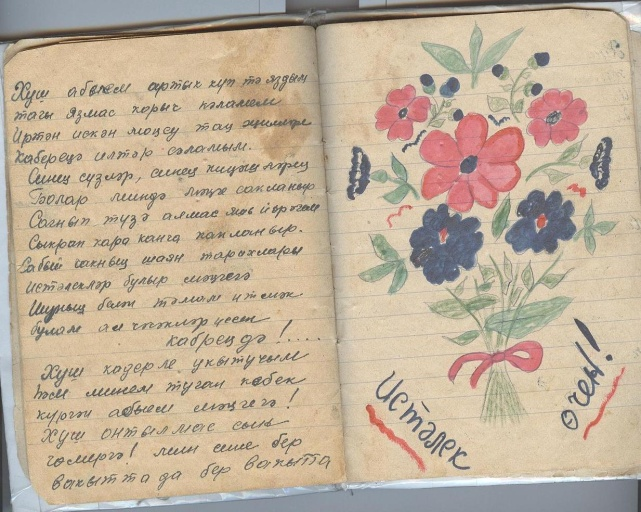 Хуш абыем артык күп тә яздым
тагы язмас корыч каләмем
Иртән искән моңсу таң җилләре
Каберецә илтәр сәламым.
Синең сүзләр, синең киңәшләрең
Болар миндә мәңге сакланыр
Сагнып түзә алмас яшь йөрәгем
Сыкрап кара канга капланыр.
Сабый чакның шаян тарихлары
истәлекләр булыр мәңгегә
Шушың белән тәмам итмәк
булам ал чәчкләр үссен
кабрецдә!....
Хуш кадерле укытучым
һәм минем туган кебек
күргән абыем мәңгегә!
Хуш онтылмас сың
гомергә! мин сине бер
вакытта да бер вакытта
Истәлек
өчен!